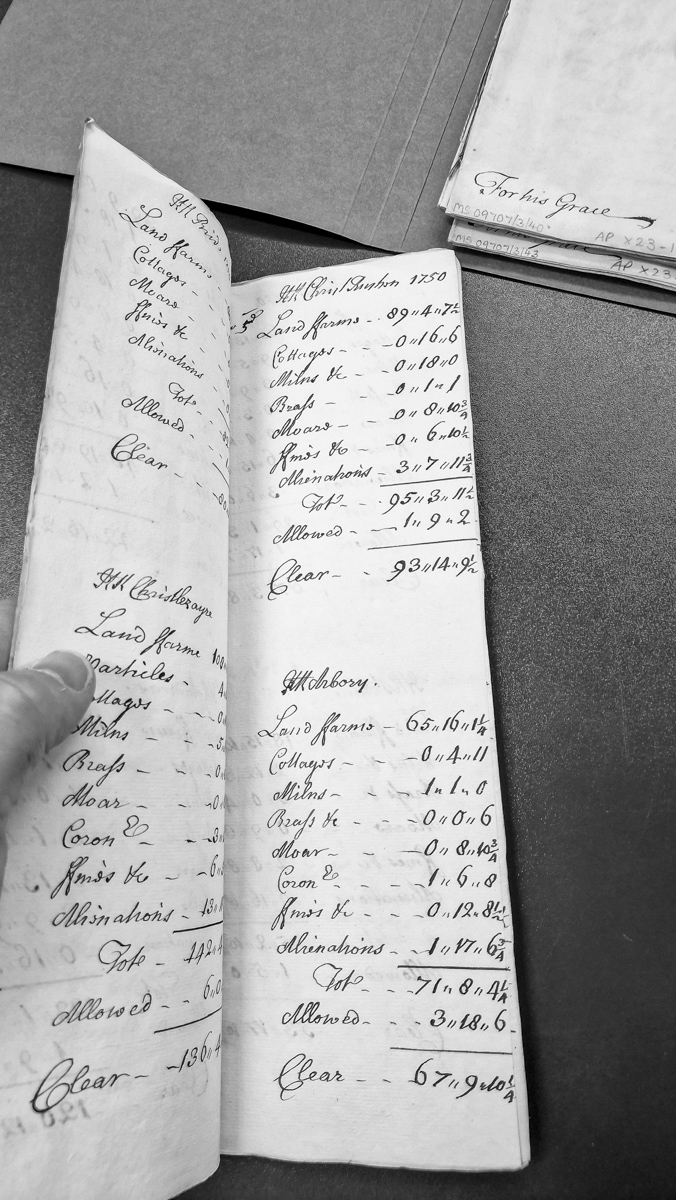 For his Grace
MS 09707/3/40
AP X23-1
MS 09707/3/43
AP X23
KK
Land ffarme -
Cottages -
Moare -
ffines &c
Alienations
Tot
Allowed -
Clear - -
KK Christlezayre
Land ffarme 100
Particles - 4
Cottages - - 0
Milns - - 5
Brass - - 0
Moar - - 0
Coron - - 3
ffines &c - - 6
Alienations - 13
Tot - 142,,4
Allowed - - 6,,0
Clear - - 136,,4
KK Christ Rushen 1750
Land ffarme - - 89,,4,,7½
Cottages - - 0,,16,,6
Milns &c - - 0,,18,,0
Brass - - 0,,1,,1
Moare - - 0,,8,,10¾
ffines &c - - 0,,6,,10½
Alienations - 3,,7,,11¾
Tot - - 95,,3,,11½
Allowed - - 1,,9,,2
Clear - - 93,,14,,9½
KK Arbory.
Land ffarme - 65,,16,,1¼
Cottages - - 0,,4,,11
Milns - - 1,,1,,0
Brass &c - - 0,,0,,6
Moar - - 0,,8,,10¾
Coron - - 1,,6,,8
ffines &c - - 0,,12,,8½
Alienations - - 1,,17,,6¾
Tot - - 71,,8,,4¼
Allowed - - 3,,18,,6
Clear - - 67,,9,,10¼